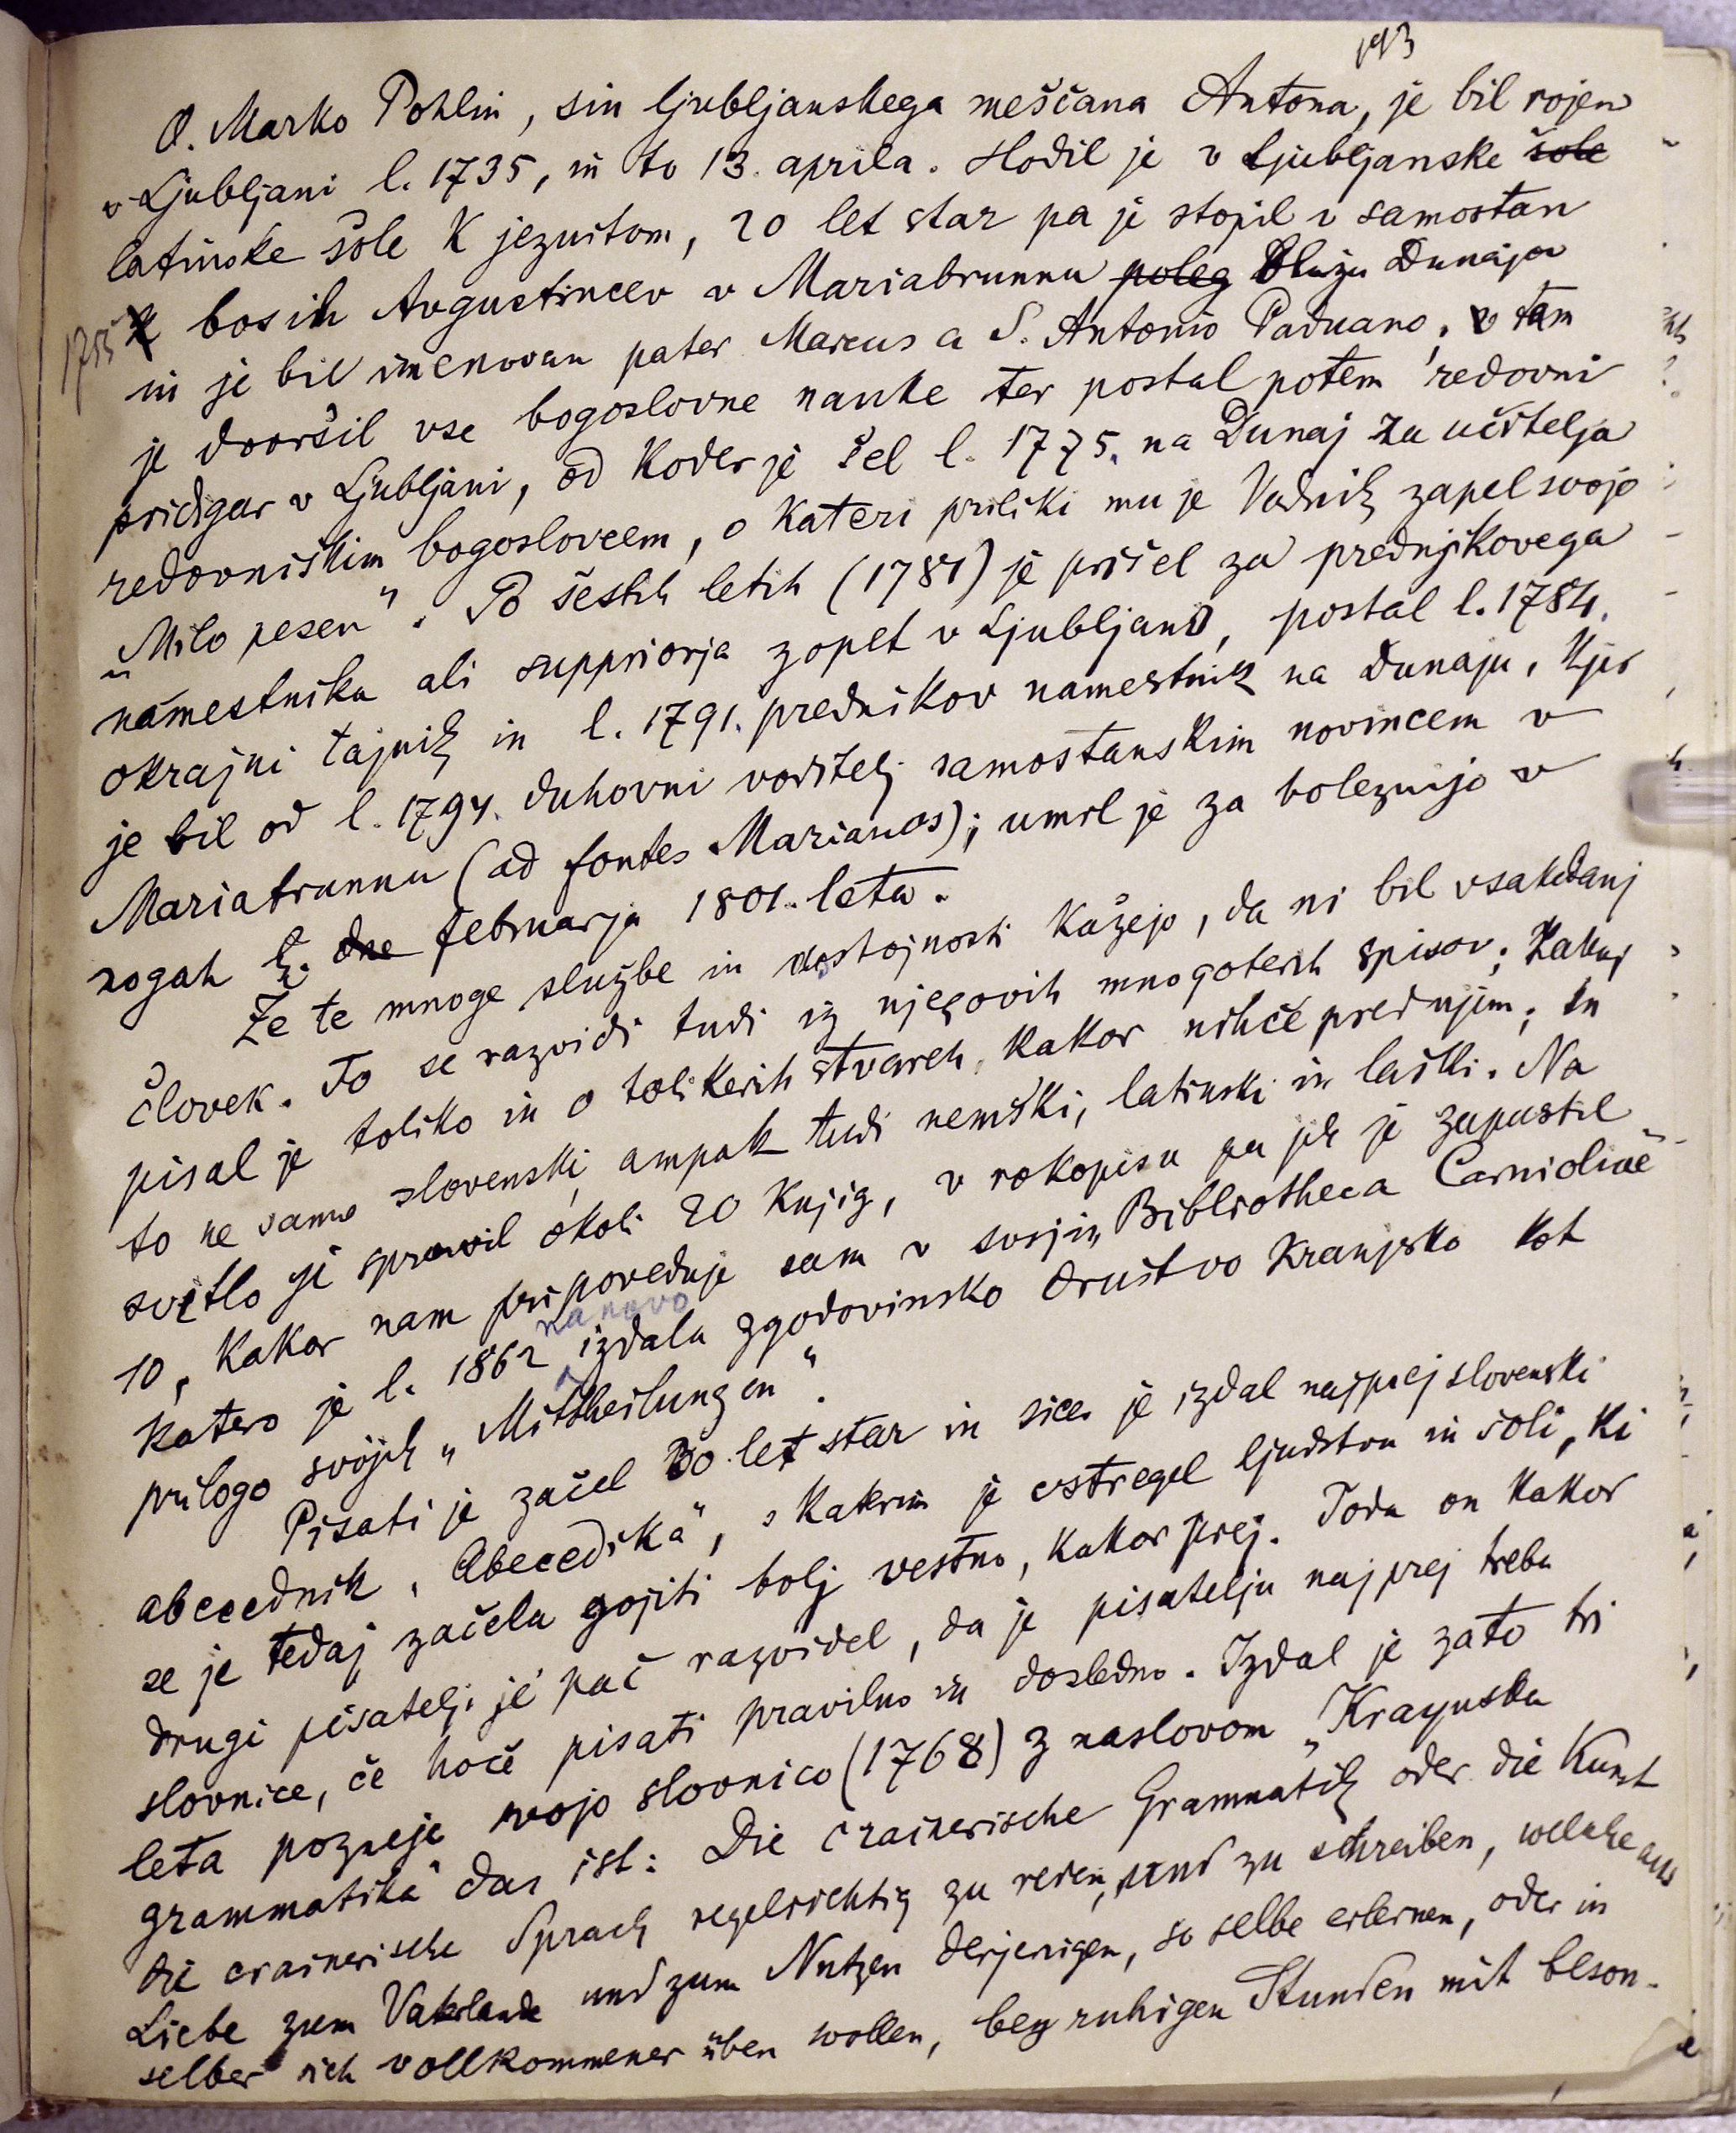 193
O. Marko Pohlin, sin ljubljanskega meščana Antona, je bil rojen
v Ljubljani l. 1735, in to 13. aprila. Hodil je v ljubljanske šole
latinske šole k jezuitom, 20 let star pa je stopil v samostan
1755 k bosih Avgustincev v Mariabrunnu poleg blizu Dunaja
in je bil imenovan pater Marcus a S. Antonio Paduano, v tam
je dovršil vse bogoslovne nauke ter postal potem redovni
pridigar v Ljubljani, od koder je šel l. 1775. na Dunaj za učitelja
redovniškim bogoslovcem, o kateri priliki mu je Vodnik zapel svojo
„Milo pesen“. Po šestih letih (1781) je prišel za prednjikovega
namestnika ali suppriorja zopet v Ljubljano, postal l. 1784.
okrajni tajnik in l. 1791. prednikov namestnik na Dunaju, kjer
je bil od l. 1794. duhovni voditelj samostanskim novincem v
Mariabrunnu (ad fontes Marianos); umrl je za boleznijo v
nogah 4. dne februarja 1801. leta.
Že te mnoge službe in dostojnosti kažejo, da ni bil vsakdanj
človek. To se razvidi tudi iz njegovih mnogoterih spisov; zakaj
pisal je toliko in o tolikerih stvareh, kakor nihče pred njim; in
to ne samo slovenski, ampak tudi nemški, latinski in laški. Na
svetlo je spravil okoli 20 knjig, v rokopisu pa jih je zapustil
10, kakor nam pripoveduje sam v svoji „Bibliotheca Carnioliae“
katero je l. 1862 na novo izdalo zgodovinsko društvo kranjsko kot
prilogo svojih „Mittheilungen“.
Pisati je začel 30 let star in sicer je izdal najprej slovenski
abecednik, „Abecedika“, s katerim je vstregel ljudstvu in šoli, ki
se je tedaj začela gojiti bolj vestno, kakor prej. Toda on kakor
drugi pisatelji je pač razvidel, da je pisatelju najprej treba
slovnice, če hoče pisati pravilno in dosledno. Izdal je zato tri
leta pozneje svojo slovnico (1768) z naslovom „Kraynska
grammatika“ das ist: Die crainerische Grammatik oder die Kunst
die crainerische Sprach regelrichtig zu reden, und zu schreiben, welche aus
Liebe zum Vaterlande und zum Nutzen derjenigen, so selbe erlernen, oder in
selber sich vollkommener üben wollen, bey ruhigen Stunden mit beson-